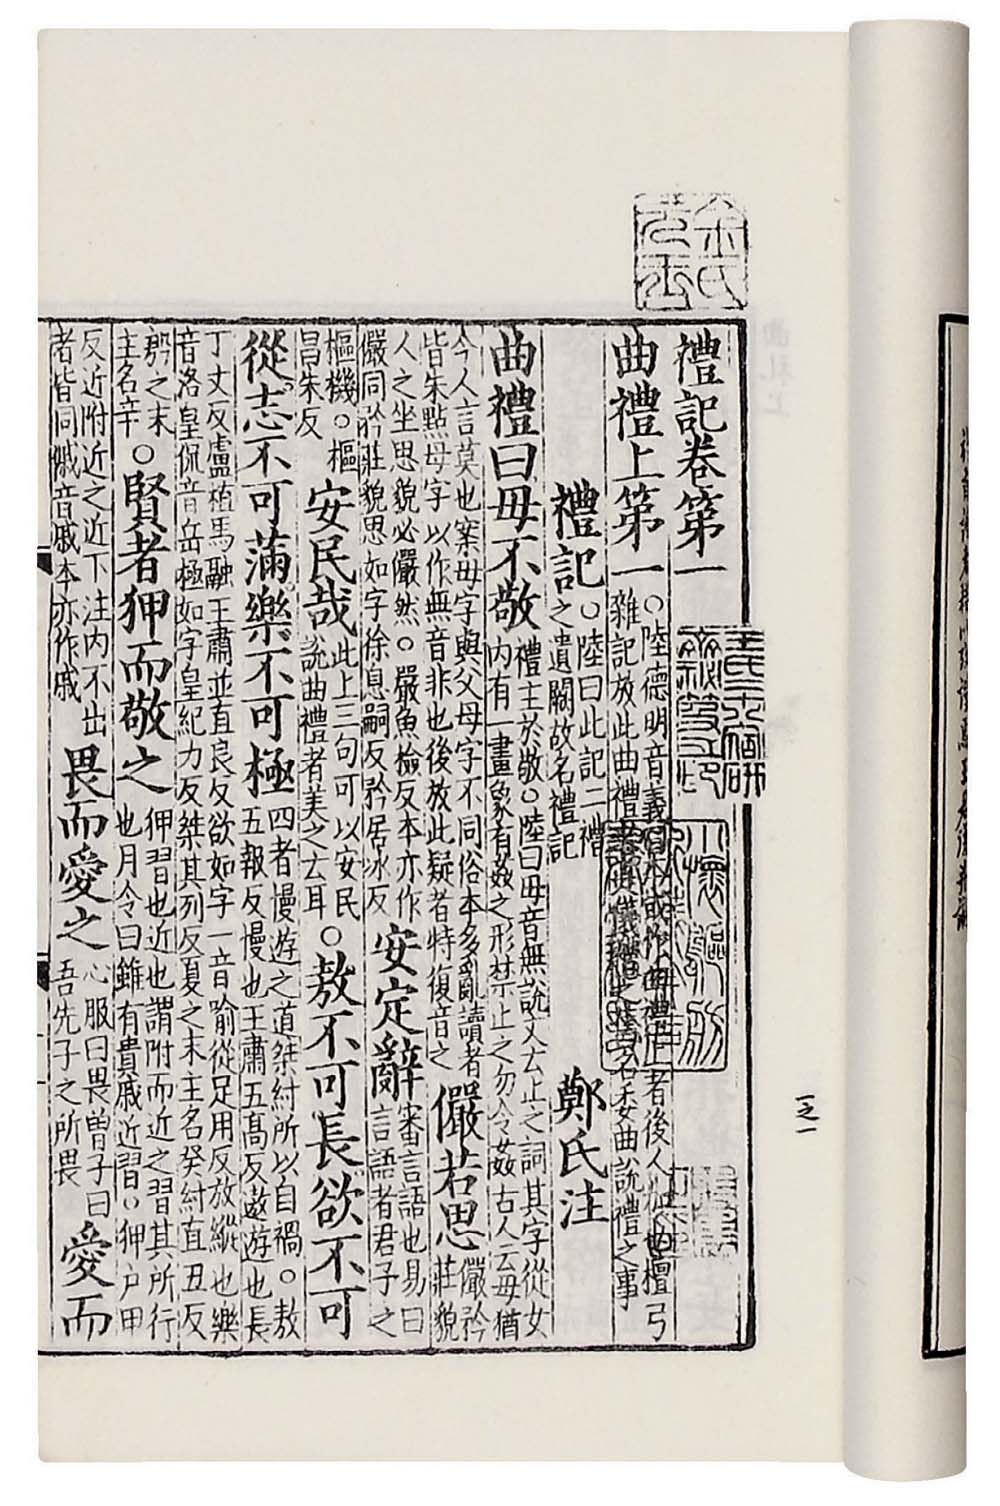 禮記卷第一
曲禮上第一
○陸德明音義曰本或作曲禮上者後人加也檀弓
雜記放此曲禮者是儀禮之舊名委曲說禮之事
禮記
○陸曰此記二禮
之遺闕故名禮記
鄭氏注
曲禮曰毋不敬
禮主於敬○陸曰毋音無說文云止之詞其字從女
内有一畫象有姦之形禁止之勿令姦古人云毋猶
今人言莫也案毋字與父母字不同俗本多亂讀者
皆朱點母字以作無音非也後放此疑者特復音之
儼若思
儼矜莊貌
人之坐思貌必儼然○嚴魚檢反本亦作
儼同矜莊貌思如字徐息嗣反矜居冰反
安定辭
審言語也易曰
言語者君子之
樞機○樞
昌朱反
安民哉
此上三句可以安民
說曲禮者美之云耳
○敖不可長欲不可
從志不可滿樂不可極
四者慢遊之道桀紂所以自禍○敖
五報反慢也王肅五高反遨遊也長
丁丈反盧植馬融王肅並直良反欲如字一音喻從足用反放縱也樂
音洛皇侃音岳極如字皇紀力反桀其列反夏之末主名癸紂直丑反
郣之末
主名辛
○賢者狎而敬之
狎習也近也謂附而近之習其所行
也月令曰雖有貴戚近習○狎戶甲
反近附近之近下注内不出
者皆同慼音戚本亦作戚
畏而愛之
心服曰畏曽子曰
吾先子之所畏
愛而
一之一